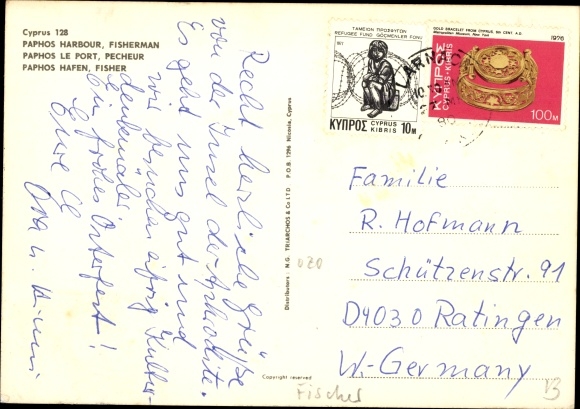 Cyprus 128
PAPHOS HARBOUR, FISHERMAN
PAPHOS LE PORT, PECHEUR
PAPHOS HAFEN, FISHER
Recht herzliche Grüße
von der Insel der Aphrodite.
Es geht uns gut und
wir besuchen eifrig Kultur-
denkmäler.
Ein frohes Osterfest!
Eure
Oma u.
Distributors: N.G. TRIARCHOS & Co LTD P.O.B. 1296 Nicosia, Cyprus
Copyright reserved
ΤΑΜΕΙΟΝ ΠΡΟΣΦΥΓΩΝ
REFUGEE FUND GÖÇMENLER FONU
ΚΥΠΡΟΣ CYPRUS KIBRIS 10M
GOLD BRACELET FROM CYPRUS, 6th CENT. A.D.
Metropolitan Museum, New York
1976
ΚΥΠΡΟΣ
CYPRUS-KIBRIS
100M
LARNA
Familie
R. Hofmann
Schützenstr. 91
D4030 Ratingen
W.-Germany
020
Fischer